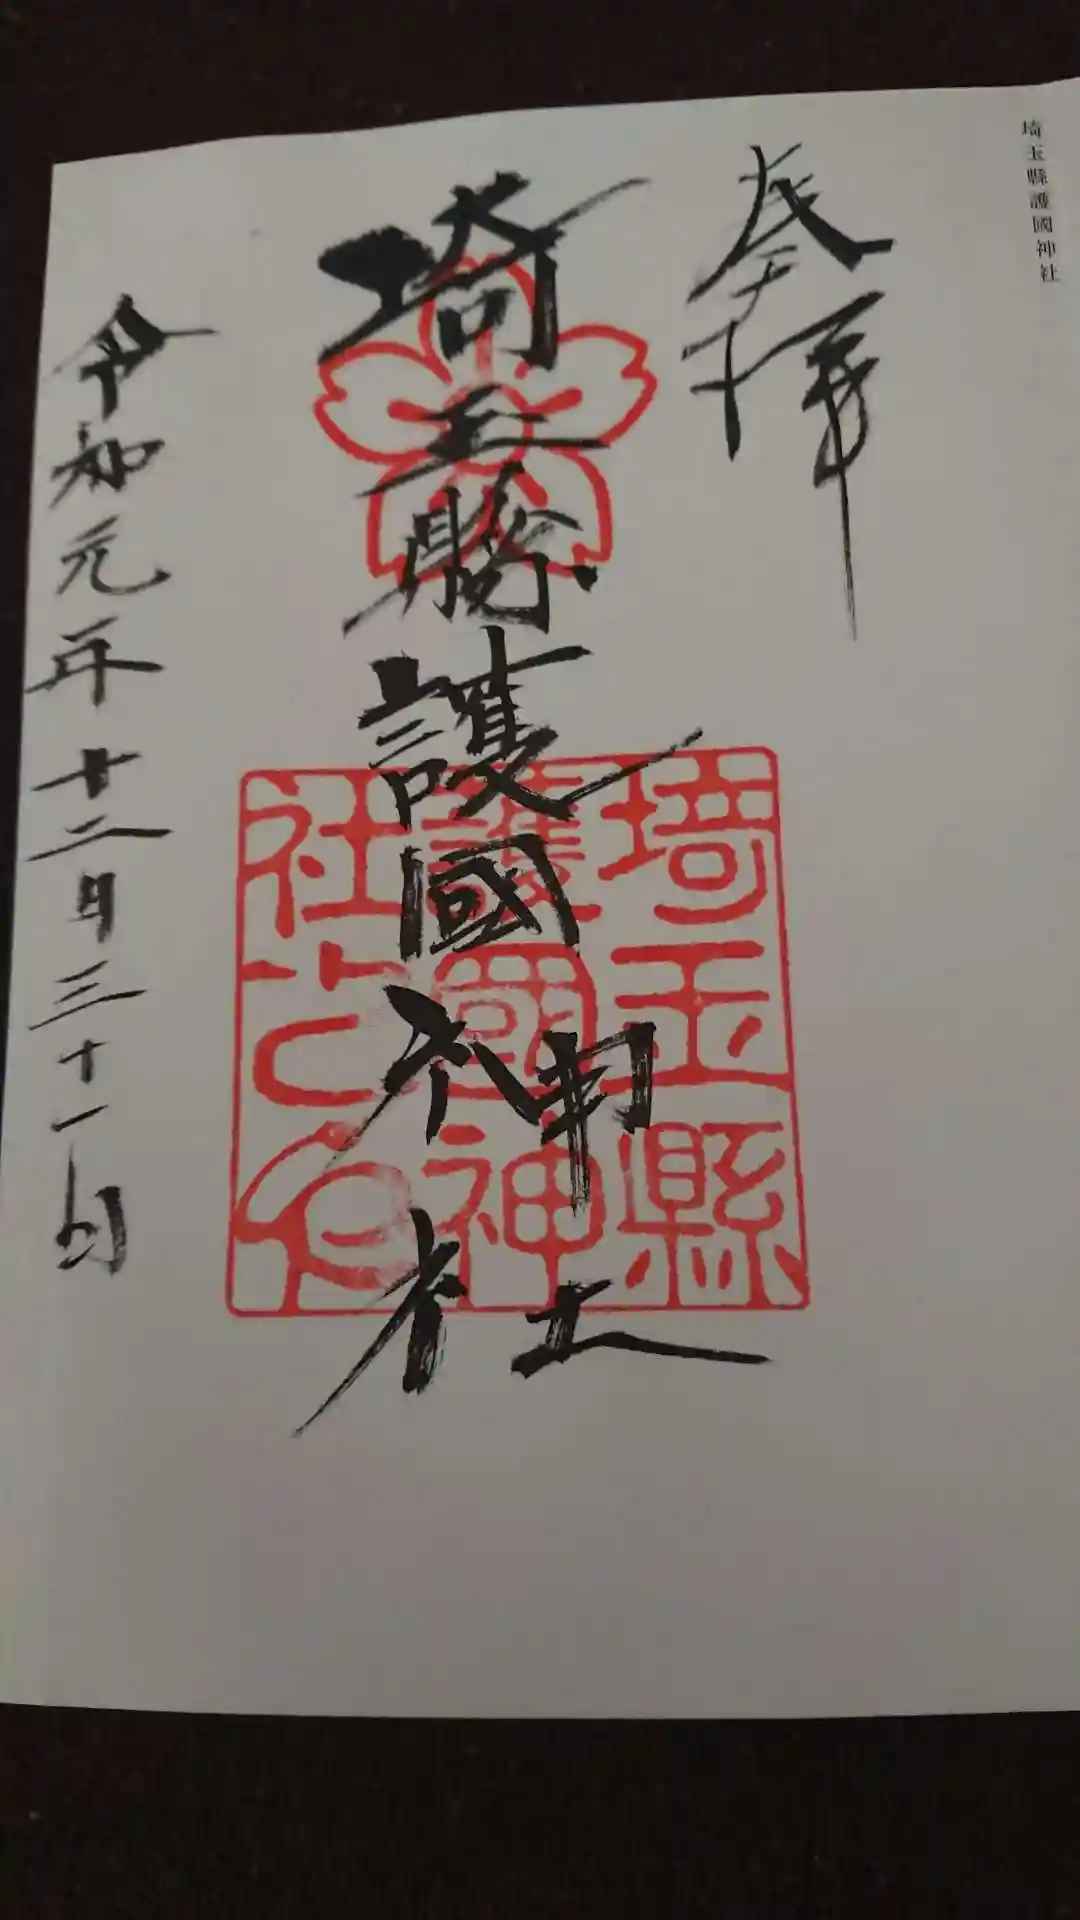 埼玉縣護國神社
奉拝
埼玉縣護國神社
埼玉縣
護國神
社之印
令和元年十二月三十一日